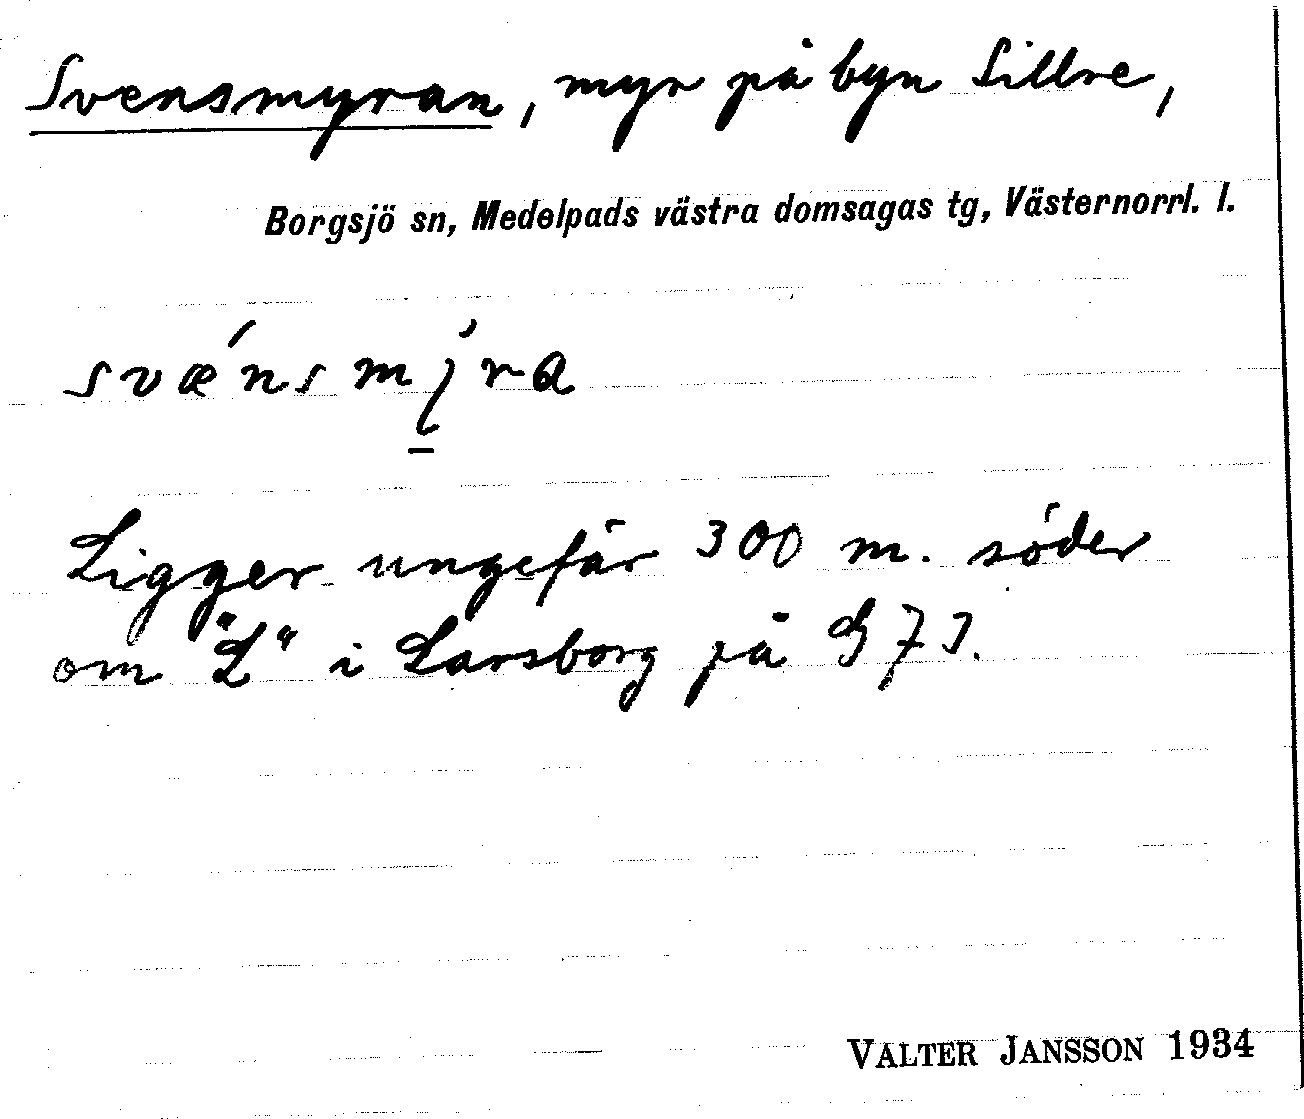 Svensmyran, myr på byn Sillre,
Borgsjö sn, Medelpads västra domsagas tg, Västernorrl. l.
Ligger ungefär 300 m. söder
om "L" i Larsborg på G 7 J.
VALTER JANSSON 1934